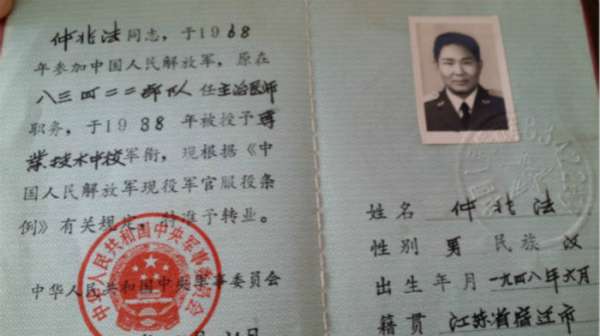 仲兆法同志，于1968
年参加中国人民解放军，原在
八三四二二部队任主治医师
职务，于1988年被授予专
业技术中校军衔，现根据《中
国人民解放军现役军官服役条
例》有关规定，特准予转业。
中华人民共和国中央军事委员会
中华人民共和国中央军事委员会
姓名 仲兆法
性别 男 民族 汉
出生年月 一九四八年六月
籍贯 江苏省宿迁市